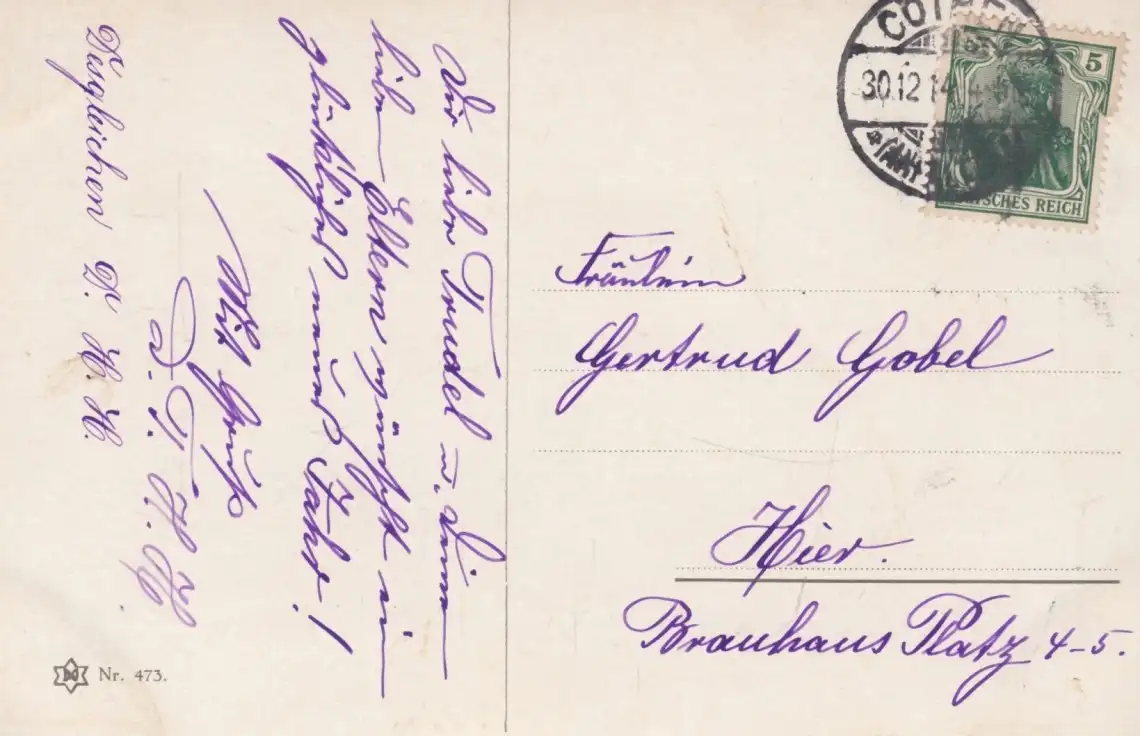 Dir liebe Trudel u. Deinen
lieben Eltern wünscht ein
glückliches neues Jahr!
Mit Gruß
D. T. H. H.
Desgleichen D. H. H.
Nr. 473.
30.12.14. 4-5
5
DEUTSCHES REICH
Fräulein
Gertrud Gobel
Hier.
Brauhaus Platz 4-5.